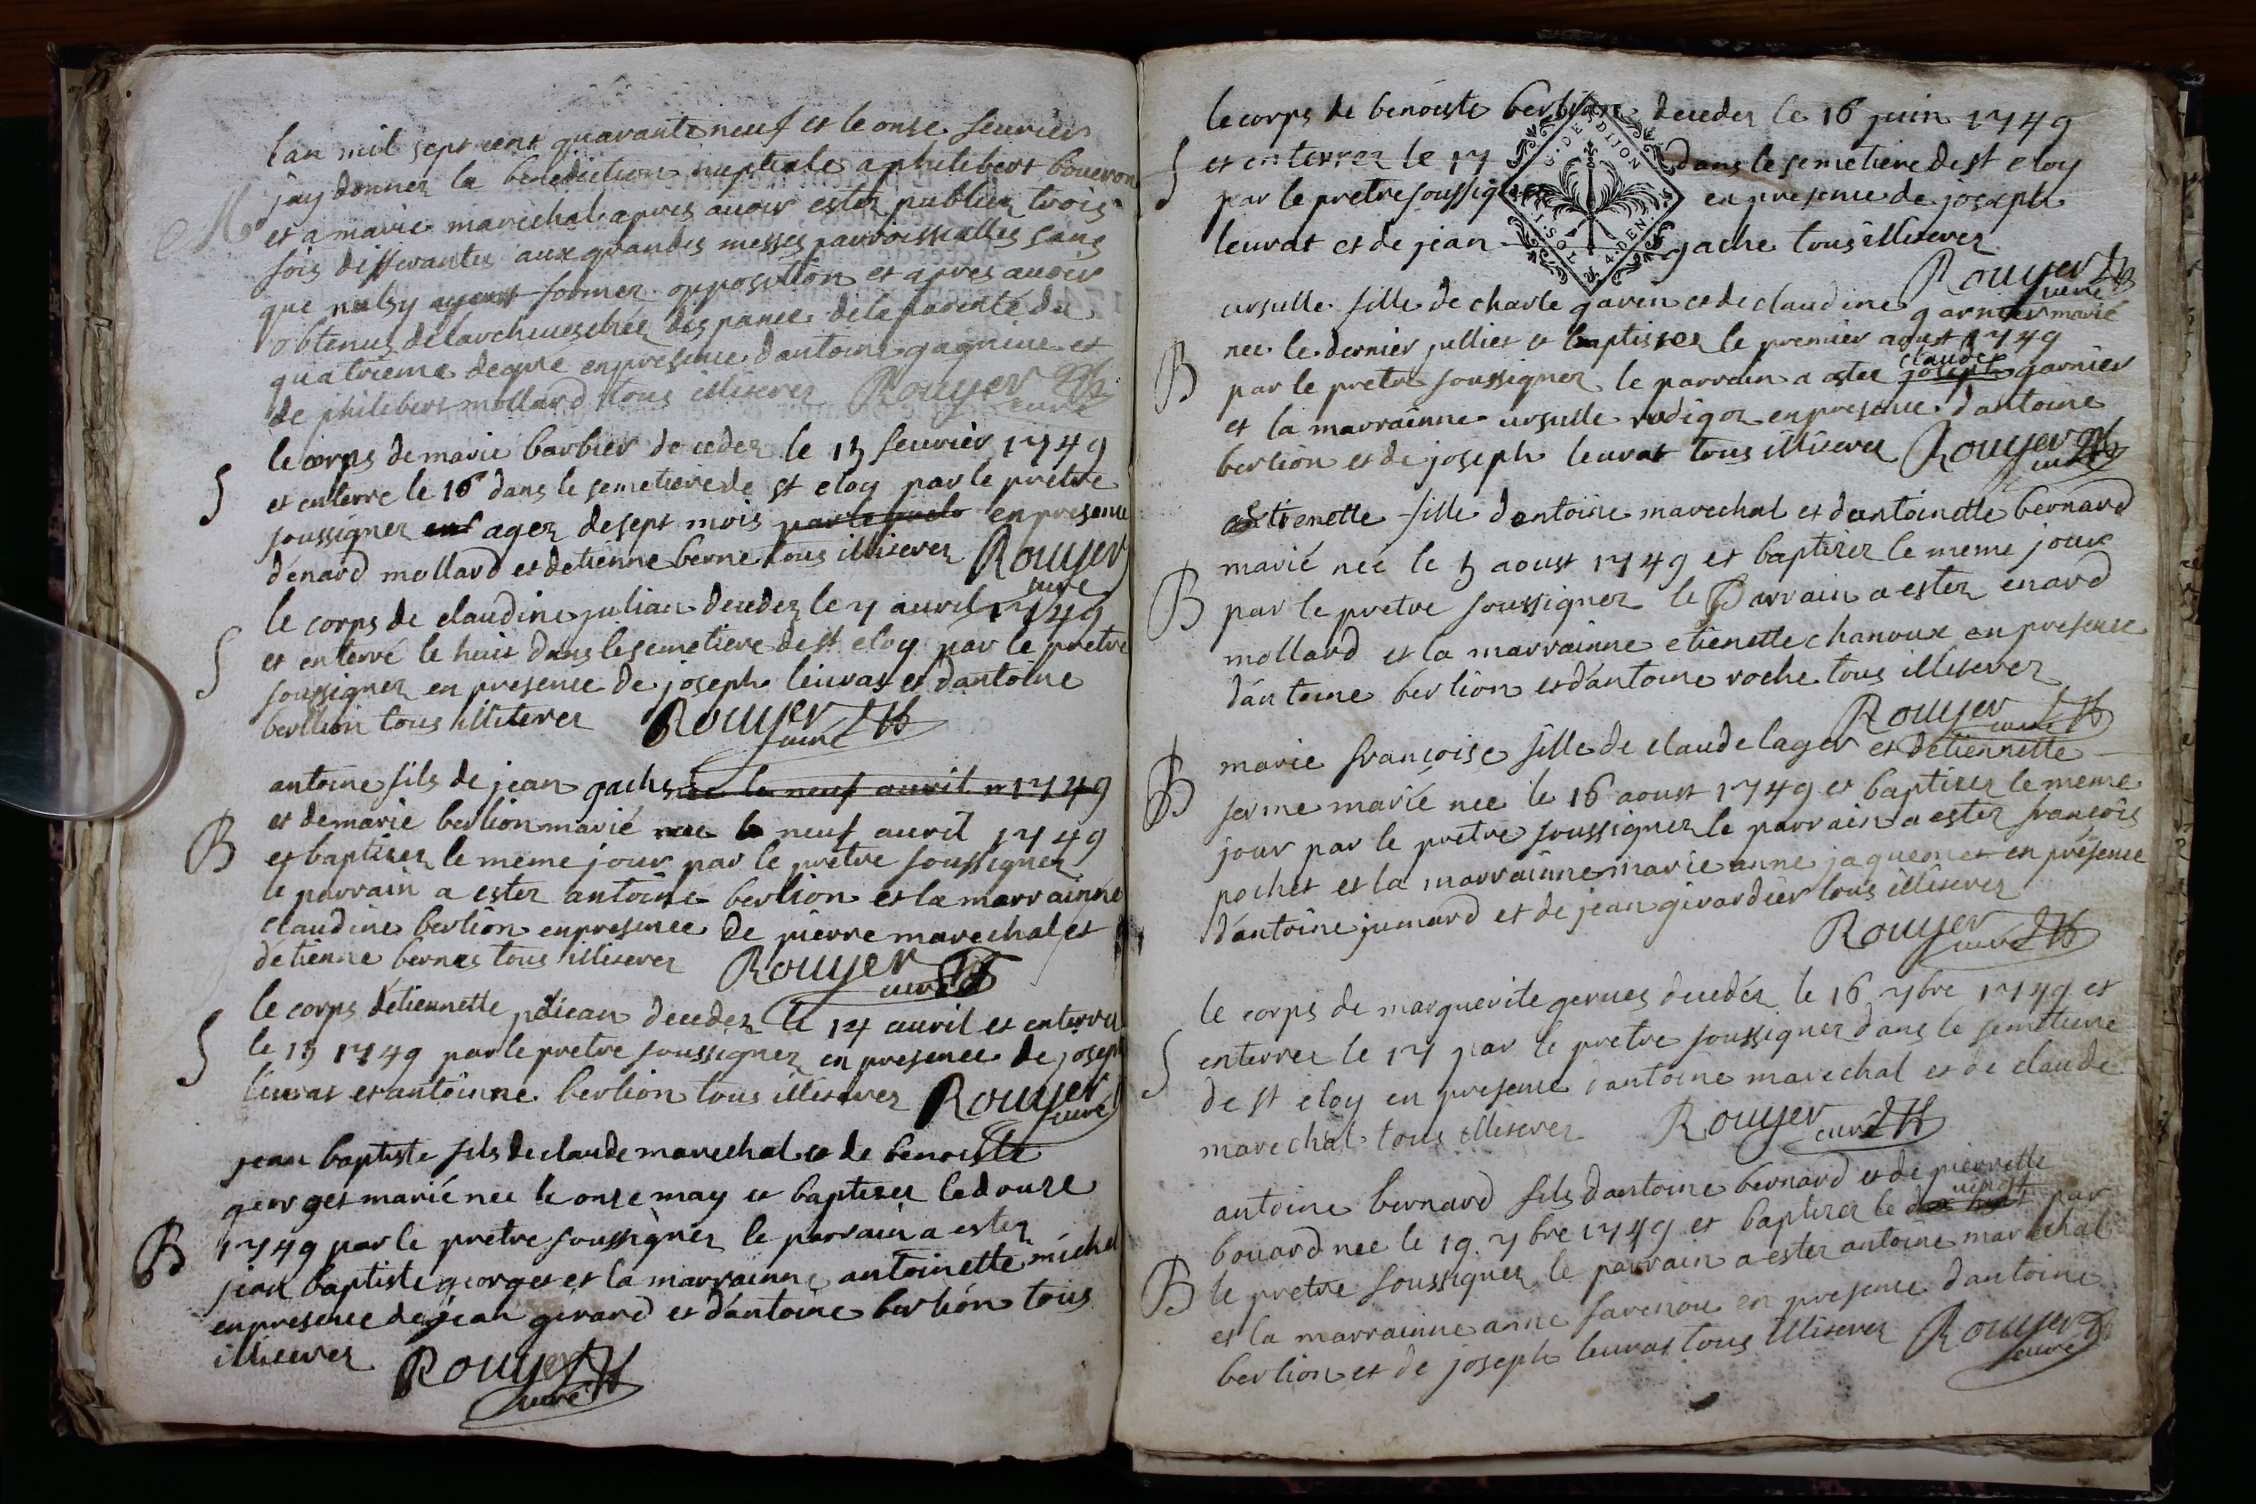 lan mil sept cent quarante neuf et le onse feuvrier
jay donner la benediction nuptiale a philibert boueron
M
et a marie marechal apres auoir ester publier trois
fois differantes aux grandes messes parroissialles sans
que nulsy ayent former opposition et apres auoir
obtenus delarcheueschée dispance dela parenté du
quatrieme degre en presence dantoine gagnieue et
de philibert mollard tous illiterez Rouyer curé
le corps de marie barbier deceder le 15 feuvrier 1749
S
et enterre le 16 dans le semetiere de st eloy par le pretre
soussigner ager desept mois en presence
dénard mollard et detienne berne tous illiterez Rouyer
curé
le corps de claudine julian deceder le 7 auril 1749
S
et enterré le huit dans le semetiere de st eloy par le pretre
soussigner en presence de joseph leuvas et dantoine
bertlion tous illiterez Rouyer curé
antoine fils de jean gache née le neuf auril 1749
et de marie bertlion marié nee le neuf auril 1749
B
et baptiser le meme jour par le pretre soussigner
le parrain a ester antoine bertlion et la marrainne
claudine bertlion en presence de pierre marechal et
détienne bernes tous illiterez Rouyer curé
le corps détiennette deceder le 14 auril et enterrer
S
le 15 1749 par le pretre soussigner en presence de joseph
leuvat et antoinne bertlion tous illiterez Rouyer
curé
jean baptiste fils de claude marechal et de benoiste
georges marié nee le onze may et baptiser le douze
B
1749 par le pretre soussigner le parrain a ester
jean baptiste georges et la marrainne antoinette michel
en presence de jean girard et dantoine bertlion tous
illiterez Rouyer
curé
le corps de benoiste bertlion deceder le 16 juin 1749
S
et enterrer le 17 dans le semetiere de st eloy
par le pretre soussigner en presence de joseph
leuvat et de jean gache tous illiterez
G. DE DIJON
4. DEN.
Rouyer
curé
ursulle fille de charle garen et de claudine garnier marié
nee le dernier julliet et baptiser le premier aoust 1749
B
claude
par le pretre soussigner le parrain a ester joseph garnier
et la marrainne ursulle rodigoz en presence dantoine
bertlion et de joseph leuvat tous illiterez Rouyer
curé
etienette fille dantoine marechal et dantoinette bernard
marié neé le 5 aoust 1749 et baptiser le meme jour
B
par le pretre soussigner le Parrain a ester enard
mollard et la marrainne etienette chanoux en presence
dantoine bertlion et dantoine roche tous illiterez
Rouyer
curé
marie françoise fille de claude lager et detiennette
B
ferme marié nee le 16 aoust 1749 et baptiser le meme
jour par le pretre soussigner le parrain a ester françois
pochet et la marrainne marie anne jaquemet en présence
dantoine jumard et de jean girardier tous illiterez
Rouyer
curé
le corps de marguerite gerues decedér le 16 7bre 1749 et
S
enterrer le 17 par le pretre soussigner dans le semetiere
de st eloy en presence dantoine marechal et de claude
marechal tous illiterez Rouyer
curé
antoine bernard fils dantoine bernard et de pierrette
vingt
bouard nee le 19 7bre 1749 et baptizer le dix huit par
B
le pretre soussigner le parrain a ester antoine marechal
et la marrainne anne farenou en presence dantoine
bertlion et de joseph leuvat tous illiterez Rouyer
curé